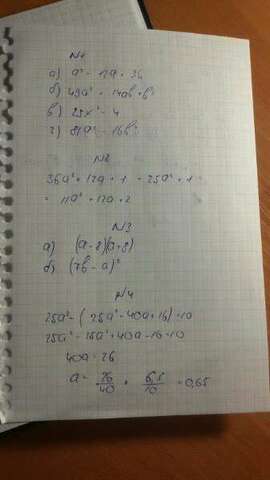 N1
а) a² - 12a + 36
б) 49a² + 14ab + b²
в) 25x² - 4
г) 81a² - 16b²
N2
36a² + 12a + 1 - 25a² + 1 =
= 11a² + 12a + 2
N3
а) (a - 8)(a + 8)
б) (7b - a)²
N4
25a² - (25a² - 40a + 16) = 10
25a² - 25a² + 40a - 16 = 10
40a = 26
a = 26/40 = 6,5/10 = 0,65